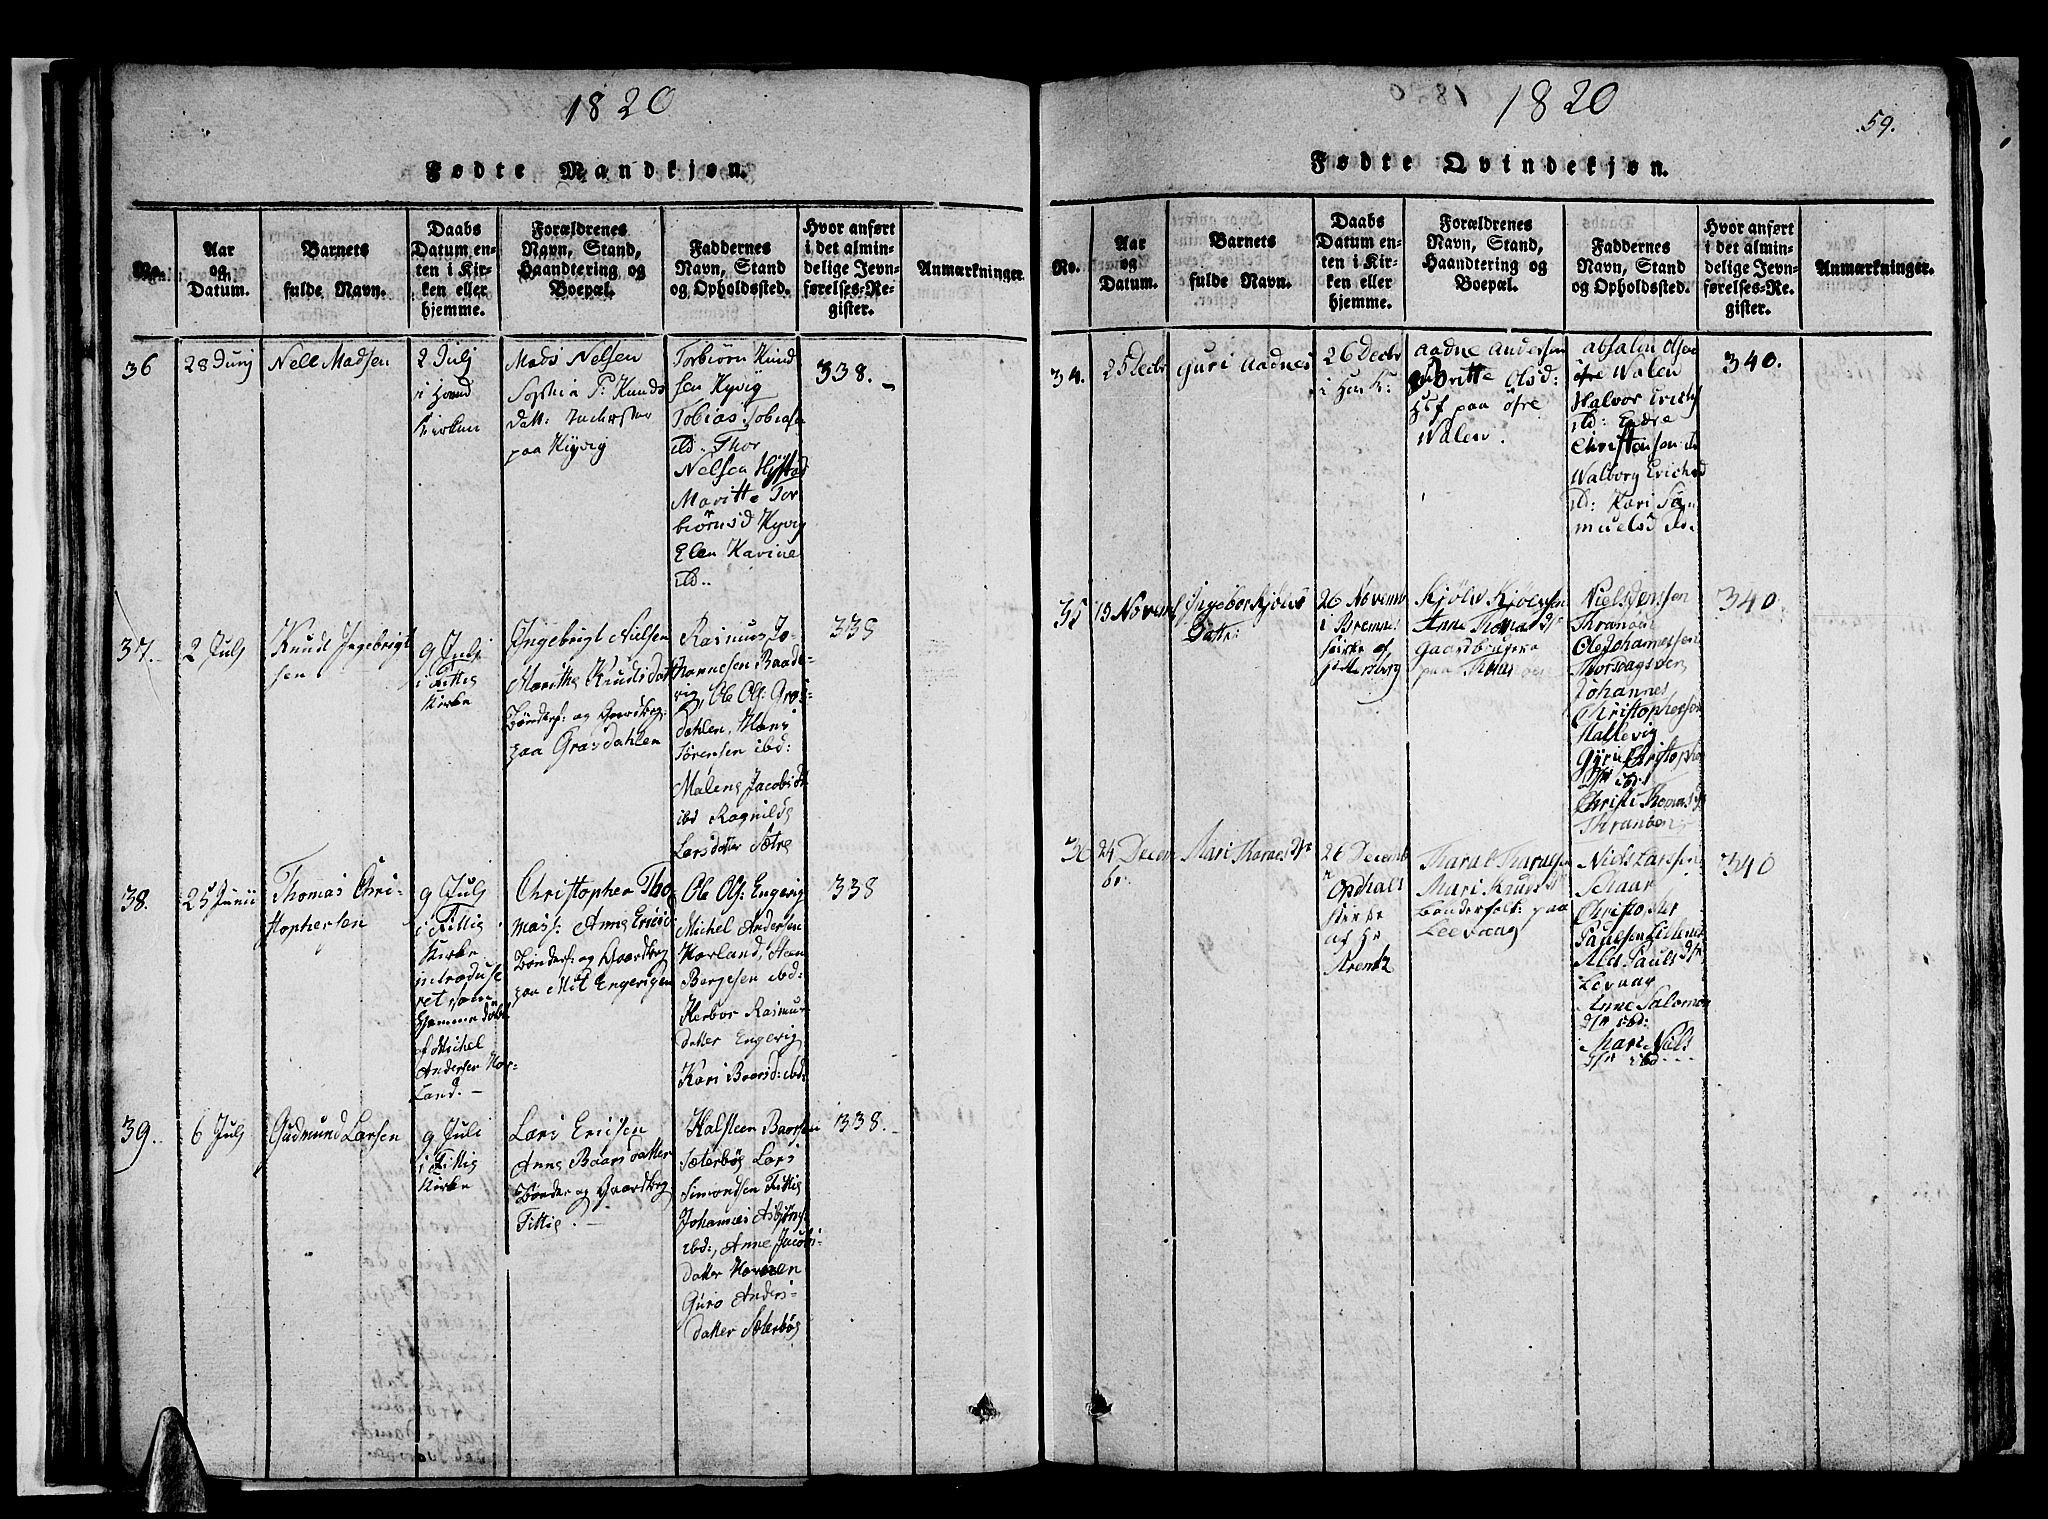 1820
Fødte Mandkjøn.
No.
Aar
og
Datum.
Barnets
fulde Navn.
Daabs
Datum en-
ten i Kir-
ken eller
hjemme.
Forældrenes
Navn, Stand,
Haandtering og
Boepæl.
Faddernes
Navn, Stand
og Opholdssted.
Hvor anført
i det almin-
delige Jevn-
førelses-Re-
gister.
Anmærkninger.
36
28 Junj
Nell Madsen
2 Julj
i
Kirken
Mads Nelsen
Sophia P: Knuds
Datt:
paa Kyvig
Torbiørn Knud
sen Kyvig
Tobias Tobiase
ibd. Thor
Nelsen
Maritte Tor
biørnsd Kyvig
Elen Karine
ibd..
338.-
37.
2 Julj
Knud Ingebrigt
sen
9 Julj
i Fittie
Kirke
Ingebrigt Nielsen
Maritha Knudsdatt
Bønderf: og Gaardbrg:
paa Grasdahlen
Rasmus Jo-
hannesen Baade-
vig, Ole Ols: Gras-
dahlen, Hans
Sørensen ibd:
Malena Jacobsdt
ibd Ragnilda
Larsdatter Sætre
338
38.
25 Junii
Thomas Chri-
stophersen
9 Julj
i Fittie
Kirke
introduse
ret som
hjemme døbt
af Michel
Andersen Hor-
land. -
Christopher Tho
mass: Anna Erics
Bønderf: og Gaardbrg
paa Mit Engevigen
Ole Ols: Engevig
Michel Andersen
Horland, Han
Børgesen ibd:
Herbor Rasmus-
datter Engevig
Kari Baarsd: ibd:
338
39.
6 Julj
Gudmund Larsen
9 Juli
i Fittie
Kirke
Lars Ericsen
Anna Baarsdatter
Bønder og Gaardbrg
Fittie. -
Halsteen Baarsen
Sæterbøe Lars
Simondsen Fittie
Johannes Asbjørns:
ibd:, Anne Jacobs-
datter
Guro Anders-
datter Sæterbøe
338.-
1820
59.
Fødte Qvindekjøn.
No.
Aar
og
Datum.
Barnets
fulde Navn.
Daabs
Datum en-
ten i Kir-
ken eller
hjemme.
Forældrenes
Navn, Stand,
Haandtering og
Boepæl.
Faddernes
Navn, Stand
og Opholdssted.
Hvor anført
i det almin-
delige Jevn-
førelses-Re-
gister.
Anmærkninger.
34.
25 Decbr
Guri Aadnes
26 Decbr
i Hus K:
Aadne Andersen
Britte Olsd:
Huf paa øfre
Walen.
Absalon Olsen
øfre Walen
Halvor Erichs
ibd: Endre
Christensen ib
Walborg Erichsd
ibd: Kari Sa
muelsd ib.
340.
35
19 Novemb
Ingebor Kjøles
Datte:
26 Novemb
i Bremnes
Kirke af
Kjølv Kjølvsen
Anne Thomas Dtr
Gaardbrugere
paa
Niels Jensen
Thranøen
Ole Johannessen
Johannes
Christophersen
Hallevig
Gyri Christophe
Dtr ibd
Christi Thomas Dtr
Thranøen
340.
36
24 Decem
br.
Mari Tharaes Dtr
26 Decemb
i
Opdhals
Kirke
af Hr
Arentz
Tharal Tharalsen
Mari Knuds Dtr
Bønderfolk: paa
Leevaag
Niels Larssen
Schaar
Christopher
Paulsen
Paulsdtr
Levaag
Anne Salomon
Dtr ibd:
Mari Niels
Dtr ibd
340